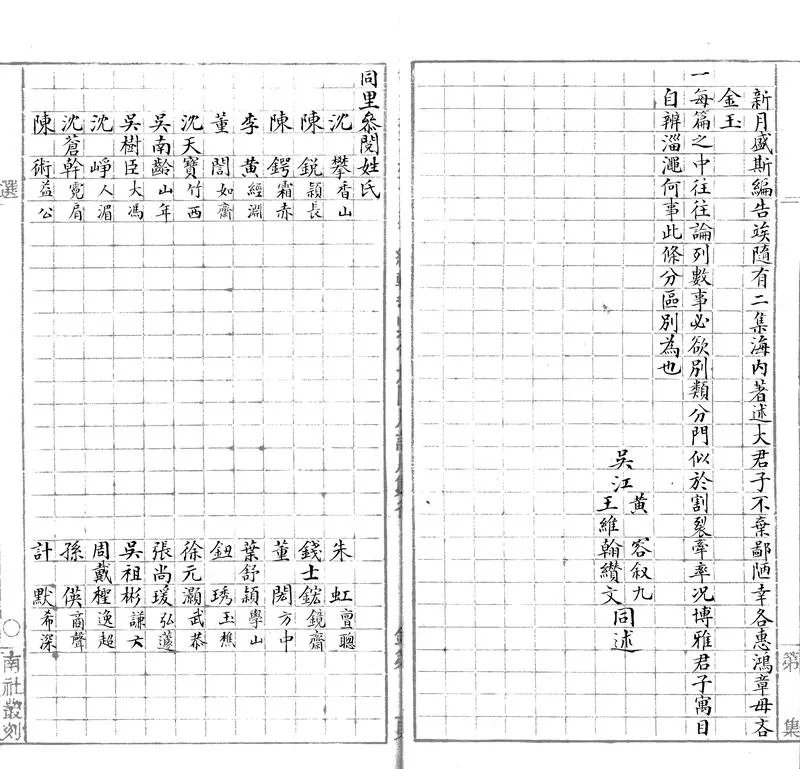 新月盛斯編告竢隨有二集海內著述大君子不棄鄙陋幸各惠鴻章毋吝
金玉
一每篇之中往往論列數事必欲別類分門似於割裂牽率況博雅君子寓目
自辨淄澠何事此條分區別為也
吳江
黃容叙九
王維翰纘文
同述
第
集
同里叅閱姓氏
沈攀香山
陳銳穎長
陳鍔霜赤
李黃經淵
董誾如齋
沈天寶竹西
吳南齡山年
吳樹臣大馮
沈崢人湄
沈蒼幹霓肩
陳術益公
朱虹亶聰
錢士鋐鏡齋
董閎方中
葉舒穎學山
鈕琇玉樵
徐元灝武恭
張尚瑗弘蘧
吳祖彬謙六
周戴樫逸超
孫僙商聲
計默希深
選
南社叢刻